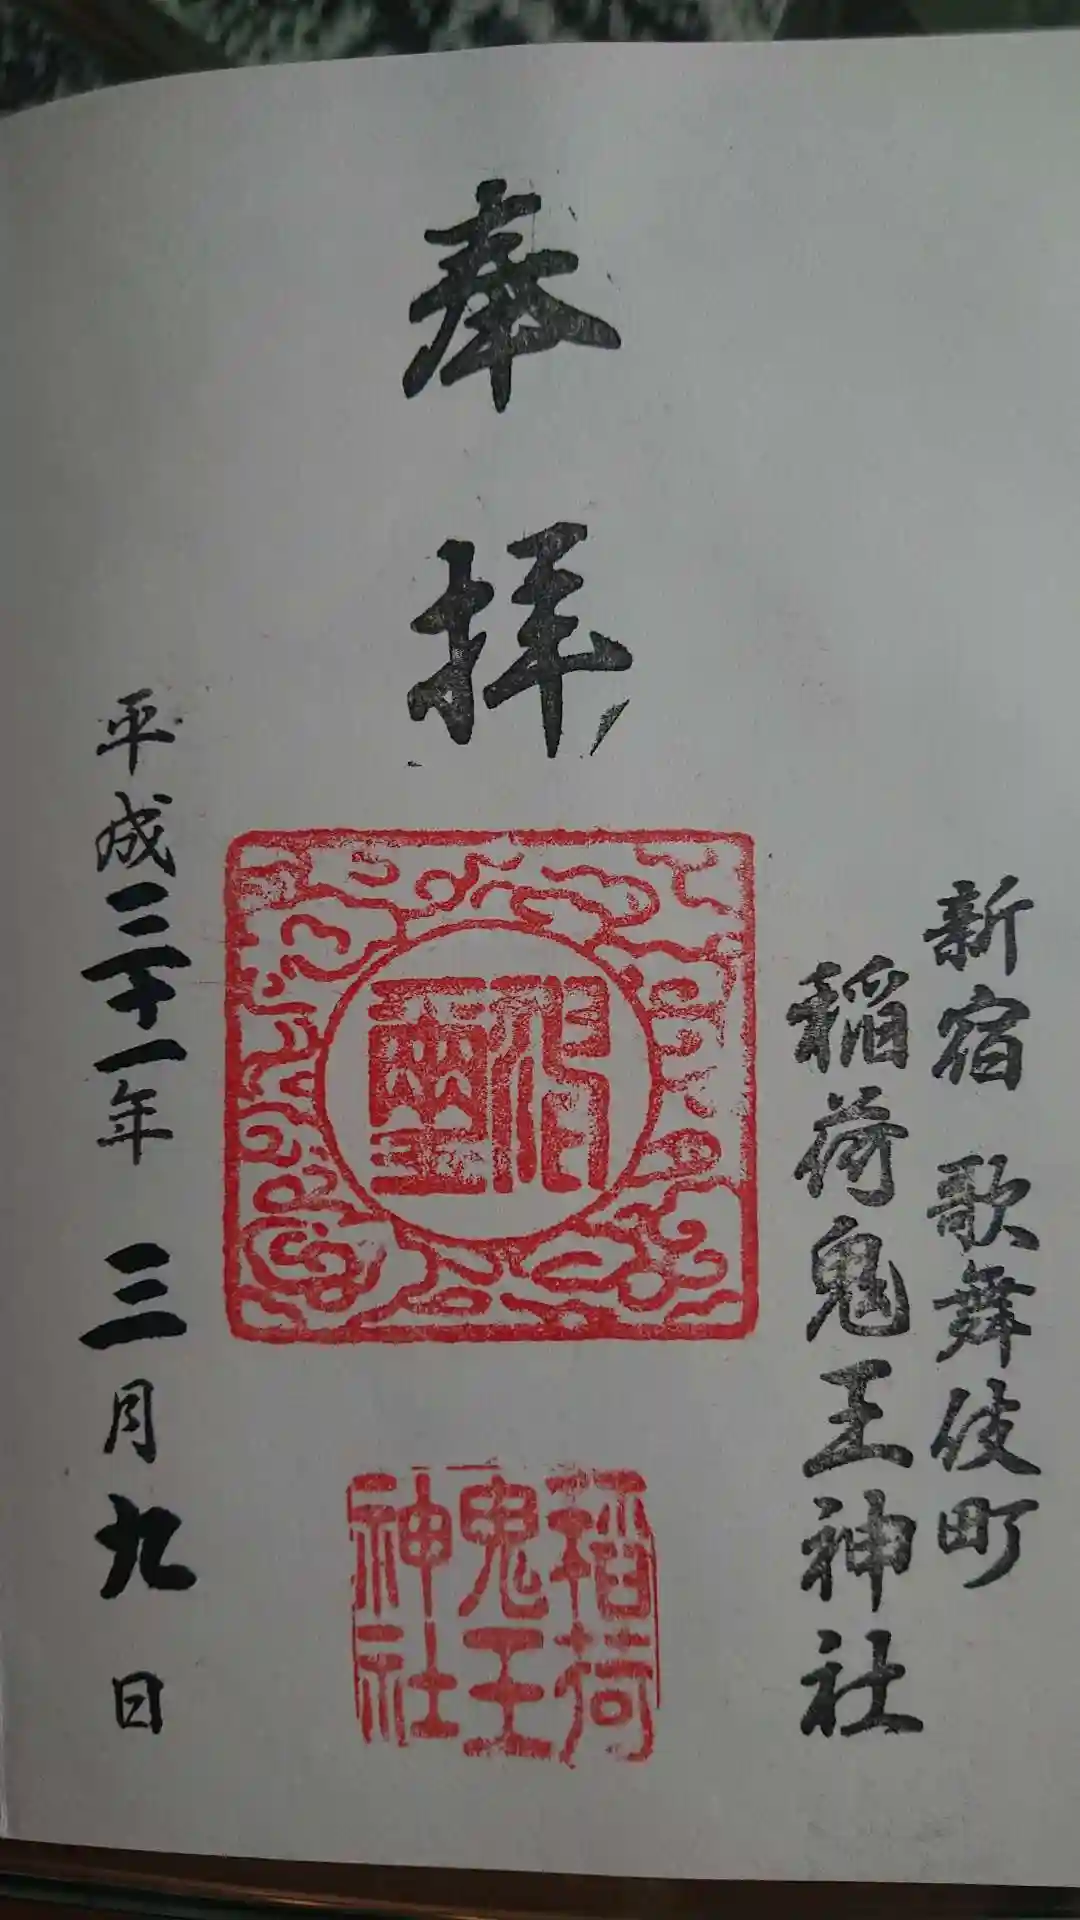 新宿 歌舞伎町
稲荷鬼王神社
奉拝
稲荷
鬼王
神社
平成三十一年 三月九日